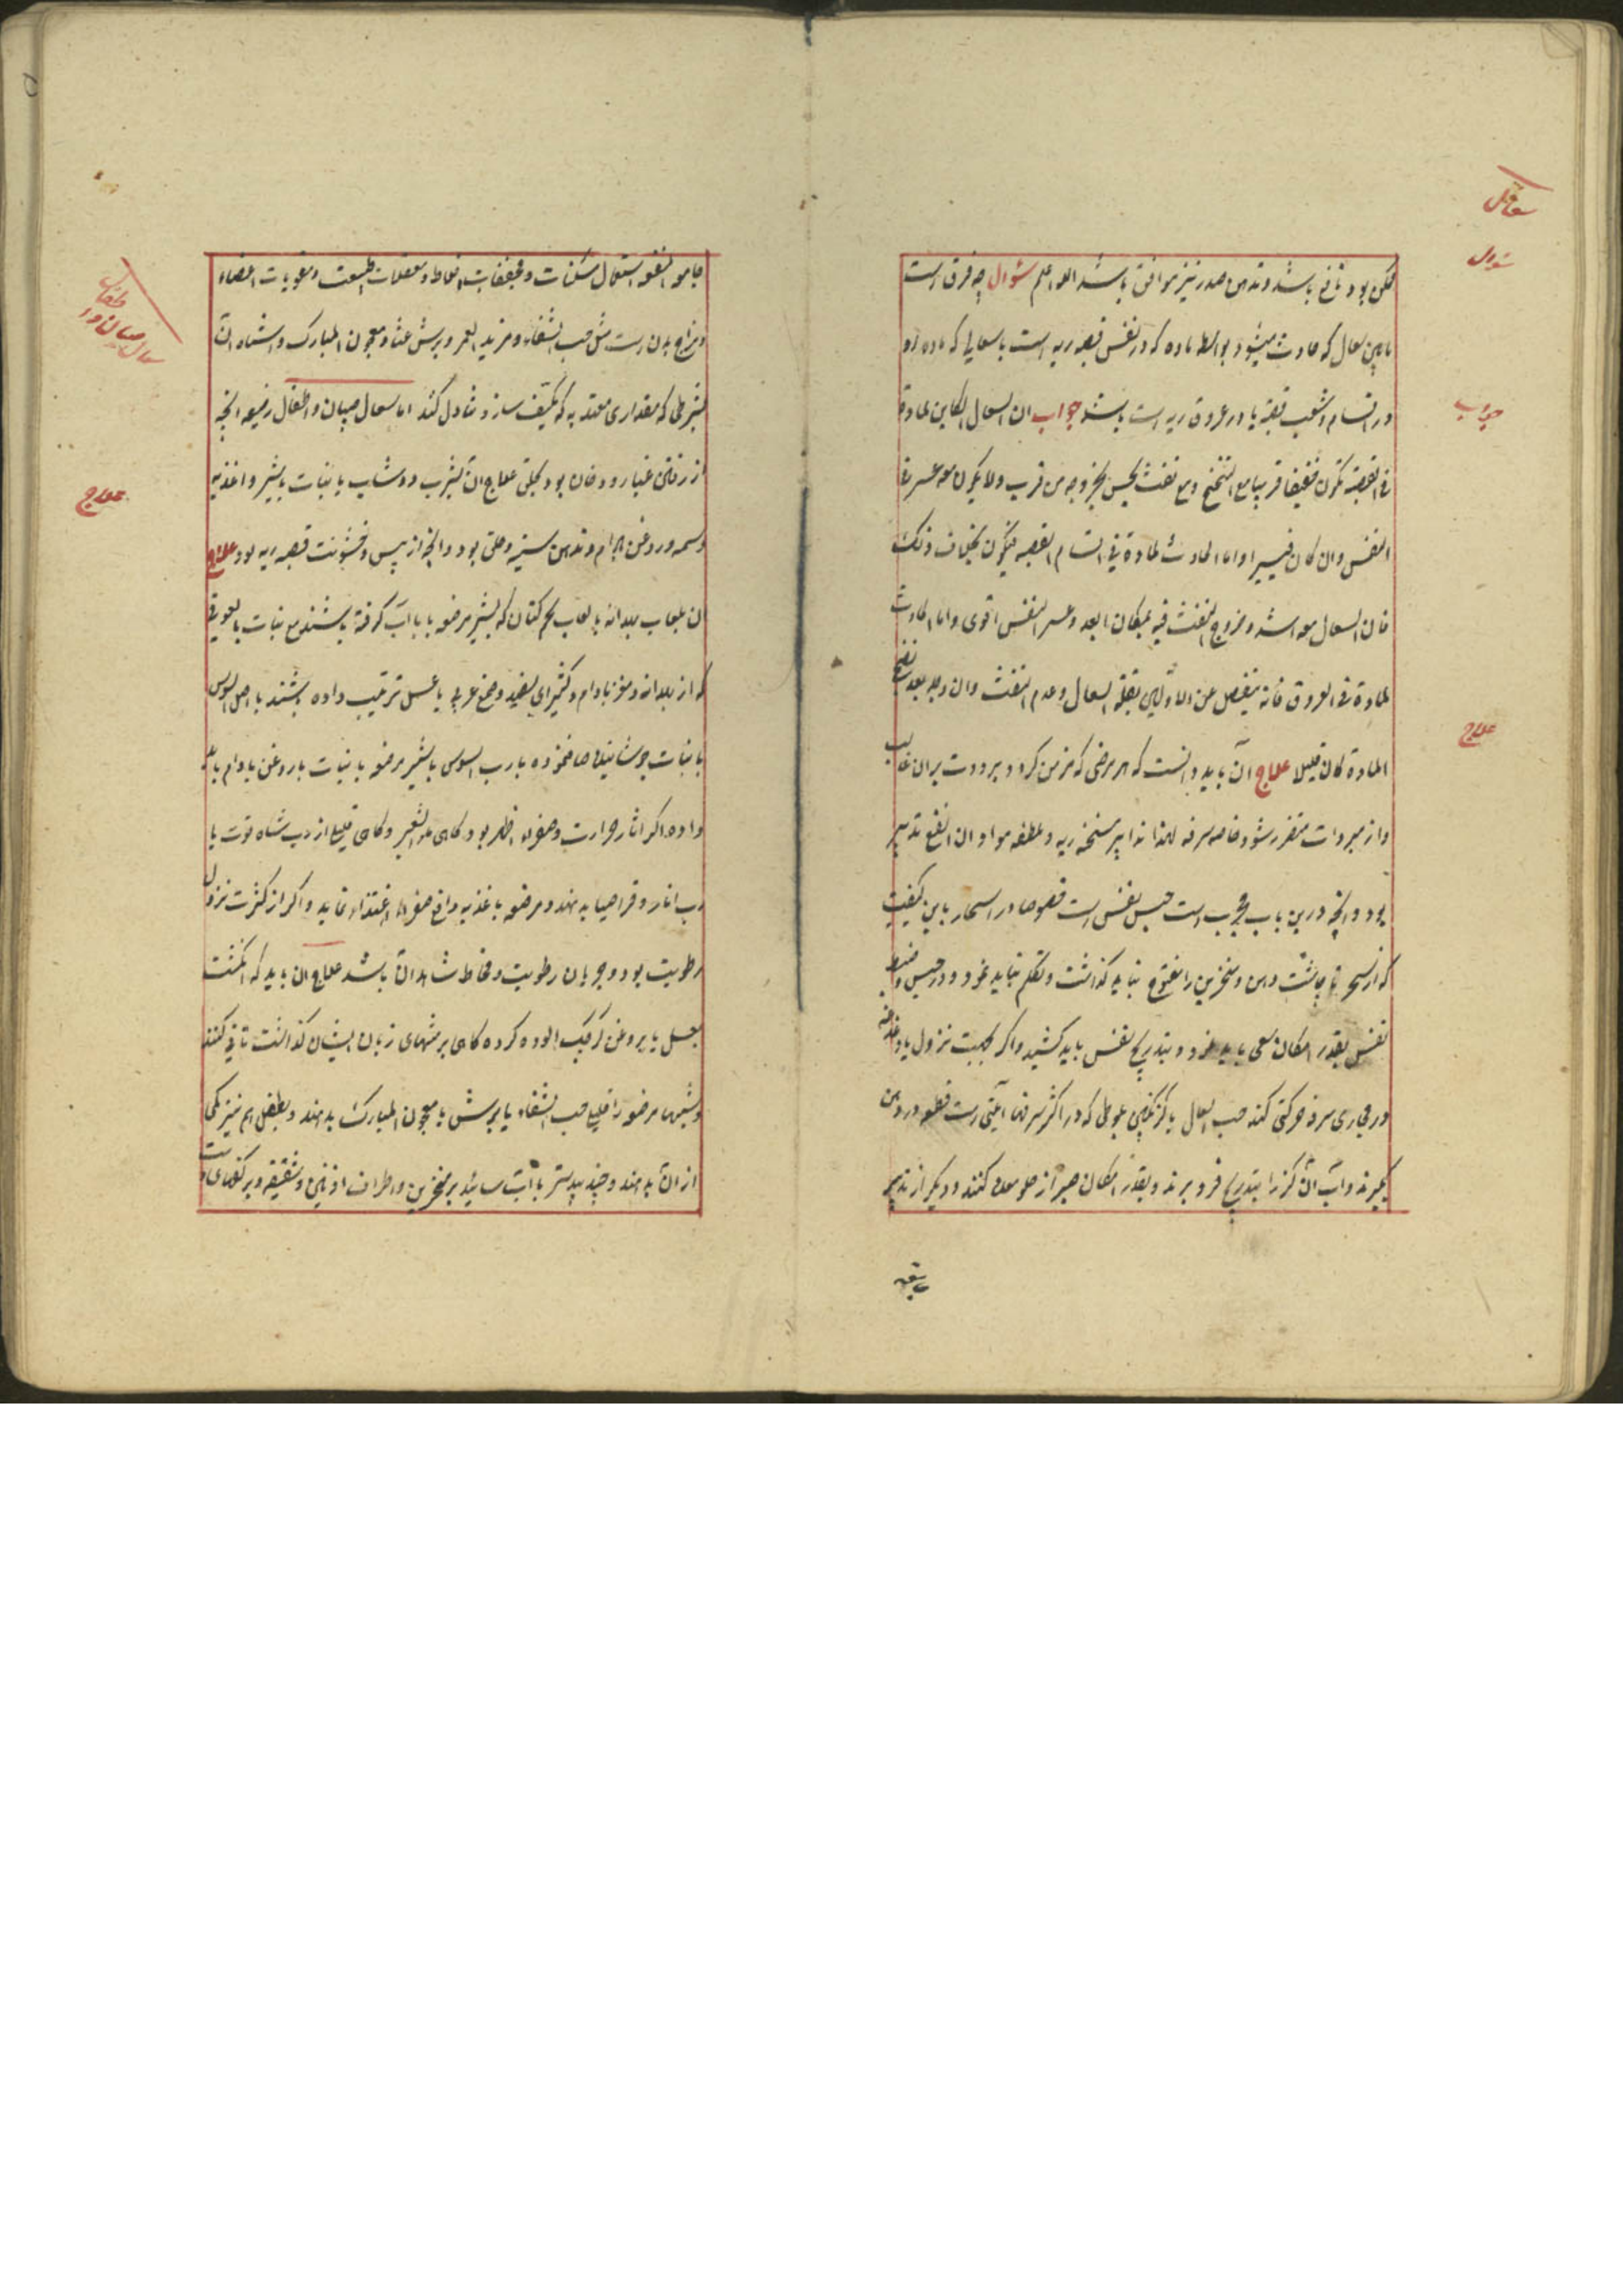 ممکن بود نافع باشد و تدهین صدر نیز موافق باشد الله اعلم سؤال چه فرق است
مابین سعال که حادث میشود بواسطه ماده که در نفس قصبه ریه است با سعالی که ماده او
در اقسام و شعب قصبه یا در عروق ریه است باشد جواب ان السعال الکاین لمادة
فی القصبة تکون خفیفا قریبا مع التنحنح ومع نفث یحس بخروجه من قریب ولا یکون معه عسر فی
النفس وان کان فیسیرا واما الحادث لمادة فی اقسام القصبه فیکون بخلاف ذلک
فان السعال معه اشد وخروج النفث فیه بمکان ابعد وعسر النفس اقوی واما الحادث
لمادة فی العروق فانه ینفصل عن الاولین بقلة السعال وعدم النفث وان وجد بعد نضج
المادة کان قلیلا علاج آن باید دانست که هر مرضی که مزمن کردد برودت بران غالب
واز مبردات متضرر شود خاصه سرفه لهذا تدابیر مسخنه ریه و ملطفه مواد ان انفع تدبیر
بود و آنچه درین باب مجرب است حبس نفس است خصوصا در اسحار باین کیفیت
که از سحر تا چاشت دهن و منخرین را مفتوح نباید کذاشت و تکلم نباید نمود و در حبس و ضبط
نفس بقدر امکان سعی باید نمود و بتدریج نفس باید کشید واکر بجهت نزول یا دغدغه
در مجاری سرفه حرکتی کند حب السعال یا کز نکبین که در اکثر سرفها آیتی است قطعه در دهن
گیرند و آب آن کز را بتدریج فرو برند و بقدر امکان صبر از حلو معده کنند و دیکر از تدبیر
سعال
سؤال
جواب
علاج
جامعه النفع استعمال مسکنات و مجففات اخلاط و معقلات طبیعت و مقویات اعضاء
و مزاج بدن است مثل حب الشفاء و مزید العمر و برش عثا و معجون المبارک و اشباه آن
بشرطی که مقداری معتد به که تکیف سازد تناول کند اما سعال صبیان و اطفال رضیعه آنچه
از رفتن غبار و دخان بود بحلق علاج آن بشرب دوشاب یا نبات باشیر و اغذیه
دسمه و روغن بادام و تدهین سینه و حلق بود و آنچه از یبس و خشونت قصبه ریه بود علاج
ان بلعاب بهدانه یا لعاب تخم کتان که بشیر مرضعه یا با آب کرفته باشند مع نبات یا لعوقی
که از بهدانه و مغز بادام و کثیرای سفید و صمغ عربی یا عسل ترتیب داده باشند یا اصل السوس
با نبات جوشانیده صاف نموده یا رب السوس باشیر مرضعه یا نبات با روغن بادام باید
داد و اکر اثار حرارت و صفرا ظاهر بود کاهی ماء الشعیر و کاهی قلیلی از رب شاه توت یا
رب انار و قراصیا بدهند و مرضعه با غذیه دافع صفراء اغتذاء نماید و اکر از کثرت نزول
رطوبت بود و جریان رطوبت و مخاط شاهد آن باشد علاج ان باید که انکشت
بعسل یا بروغن کرچک آلوده کرده کاهی بر منتهای زبان ایشان کذاشت تا قی کنند
و شبها مرضعه را قلیلی حب الشفاء یا برش یا معجون المبارک بدهند و بطفل هم نیز کمی
از آن بدهند و جند بیدستر با آب سائید بر منخرین و اطراف اذنین و شقیقه و بر کفهای دست
سعال صبیان و اطفال
علاج
بقیه